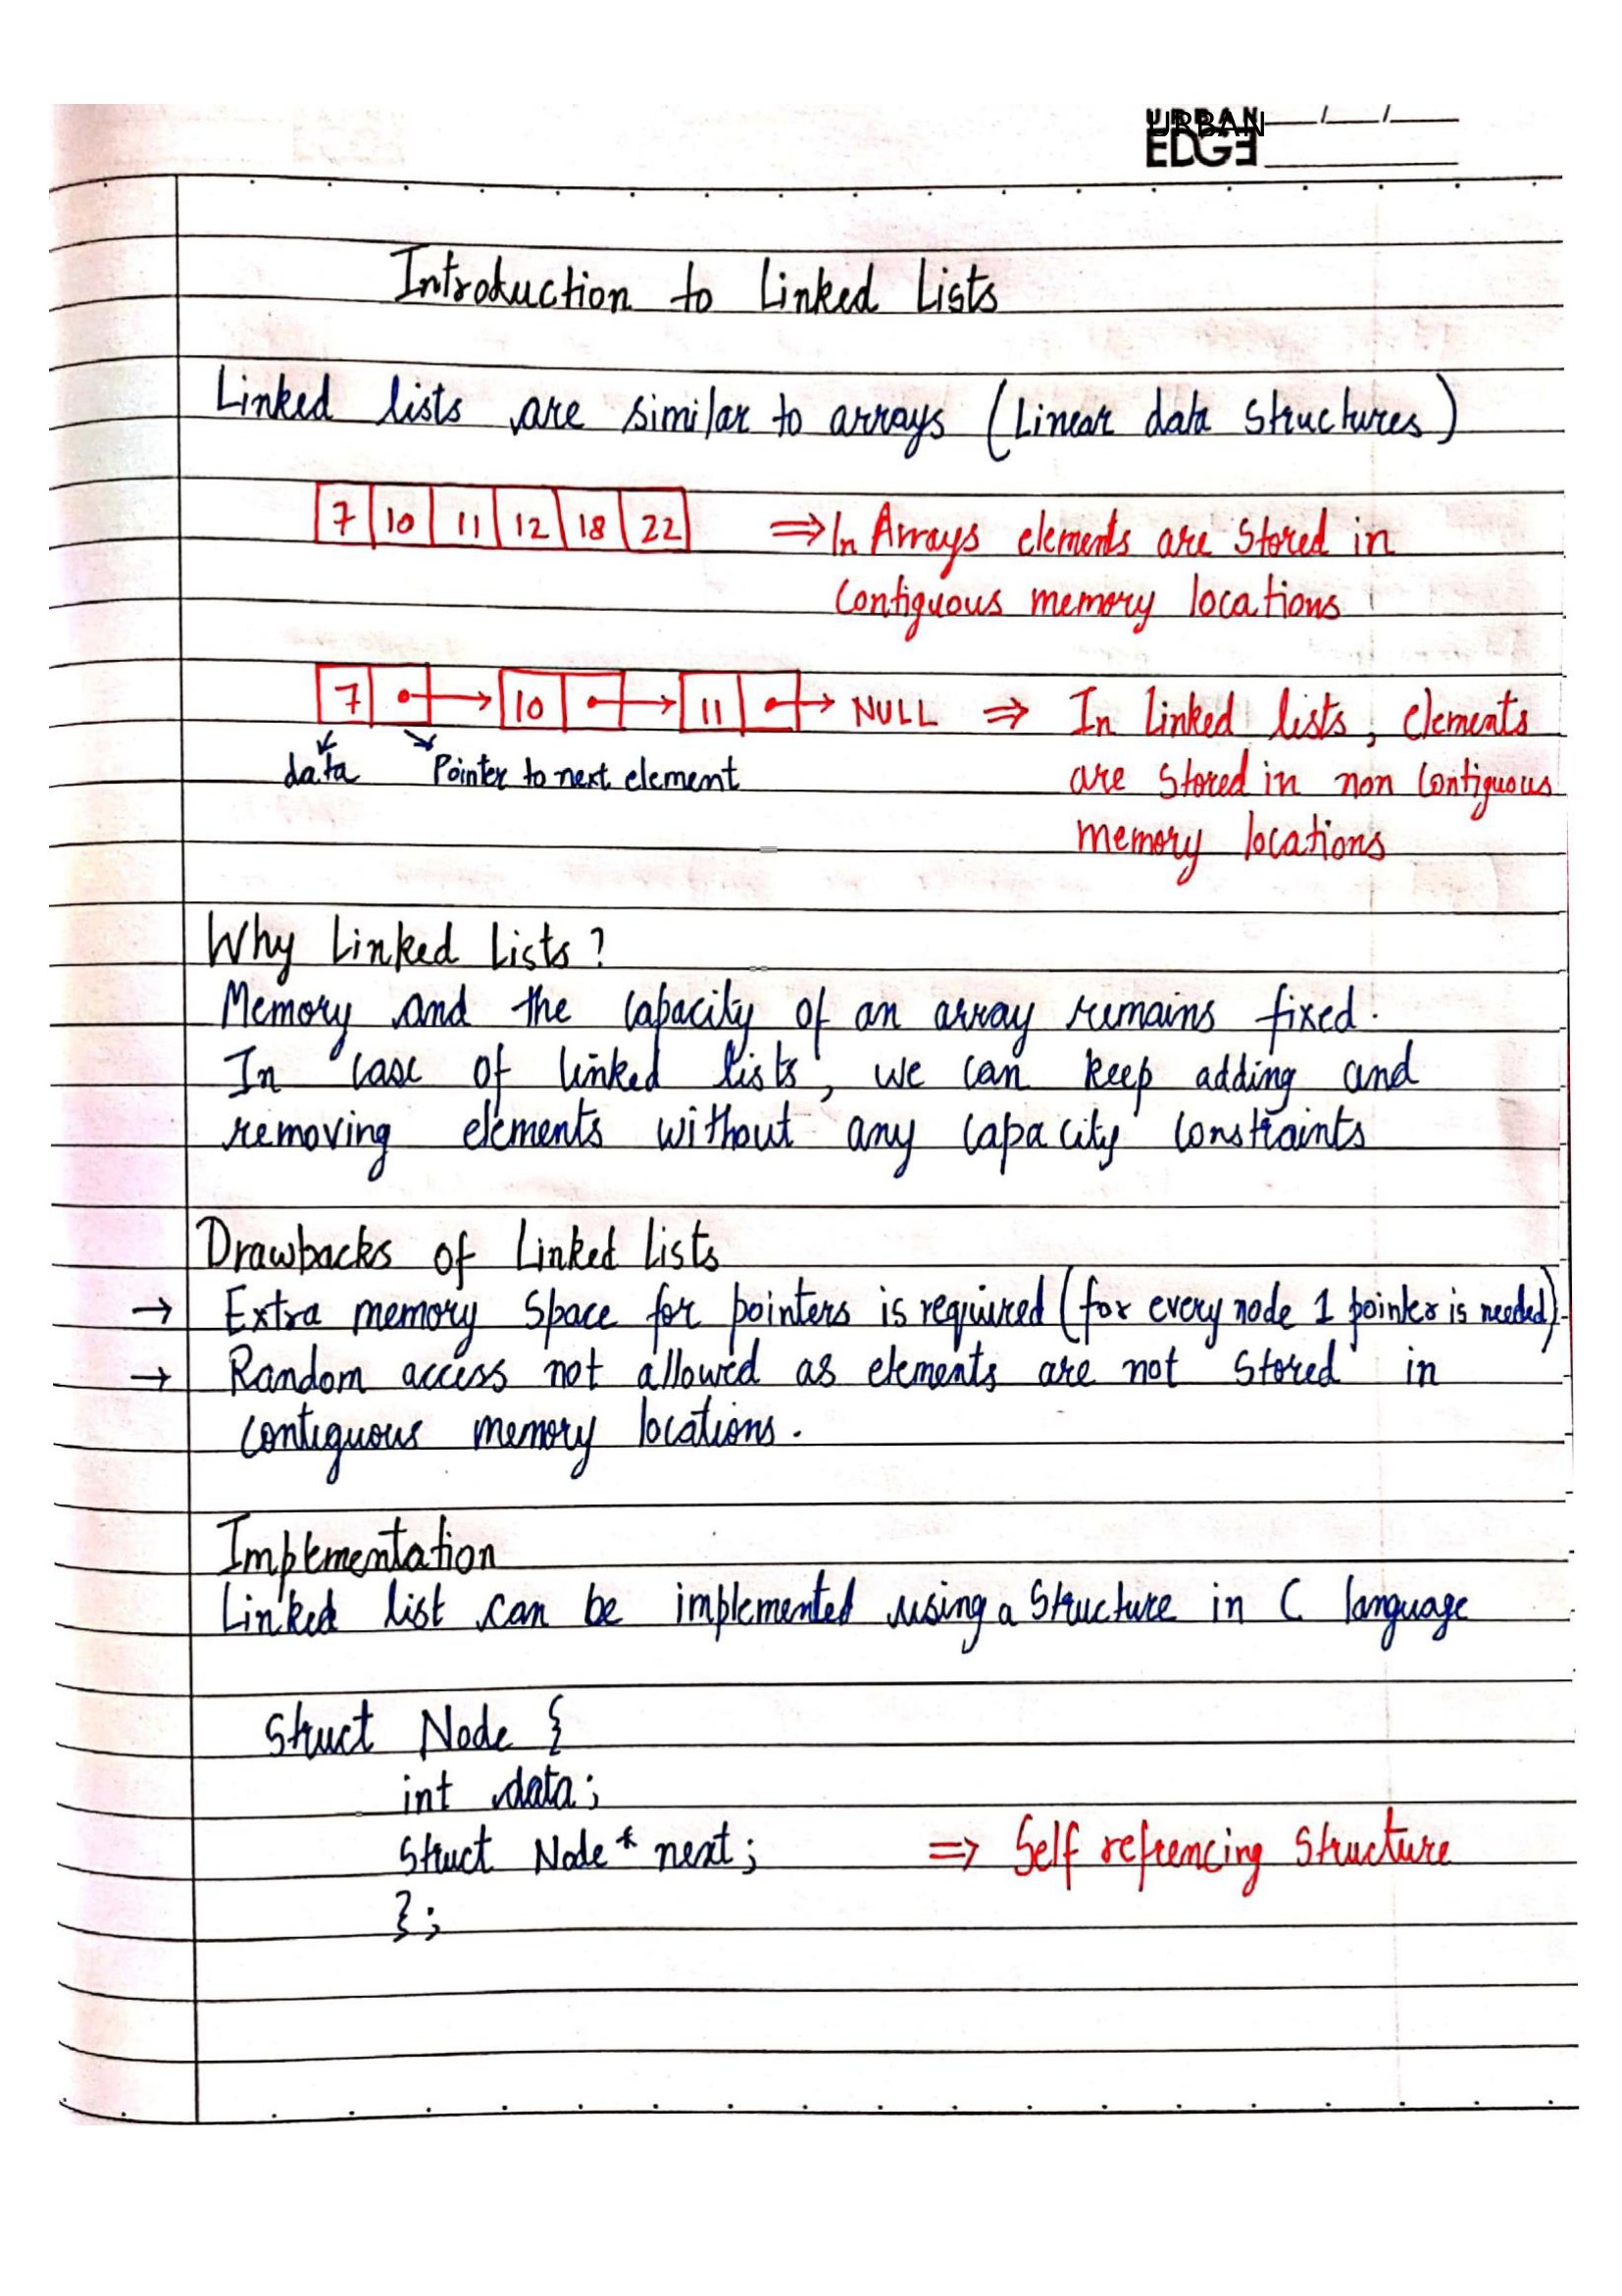 URBAN
EDGE
Introduction to Linked Lists
Linked lists are similar to arrays (Linear data Structures)
7 10 11 12 18 22 ⇒ In Arrays elements are Stored in
Contiguous memory locations
7 → 10 → 11 → NULL ⇒ In linked lists, elements
data Pointer to next element are Stored in non Contiguous
memory locations
Why Linked Lists?
Memory and the capacity of an array remains fixed.
In case of linked lists, we can keep adding and
removing elements without any capacity constraints
Drawbacks of Linked Lists
→ Extra memory Space for pointers is required (for every node 1 pointer is needed)
→ Random access not allowed as elements are not Stored in
contiguous memory locations.
Implementation
Linked list can be implemented using a Structure in C language
Struct Node {
int data;
Struct Node* next; ⇒ Self refrencing Structure
};